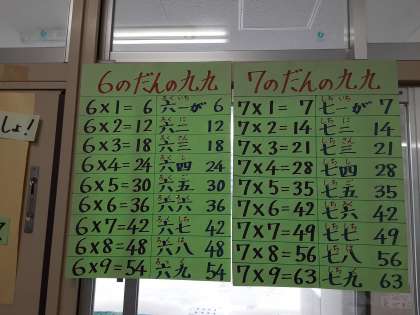 しょ!
6のだんの九九
6×1=6 六一が 6
6×2=12 六二 12
6×3=18 六三 18
6×4=24 六四 24
6×5=30 六五 30
6×6=36 六六 36
6×7=42 六七 42
6×8=48 六八 48
6×9=54 六九 54
7のだんの九九
7×1=7 七一が 7
7×2=14 七二 14
7×3=21 七三 21
7×4=28 七四 28
7×5=35 七五 35
7×6=42 七六 42
7×7=49 七七 49
7×8=56 七八 56
7×9=63 七九 63